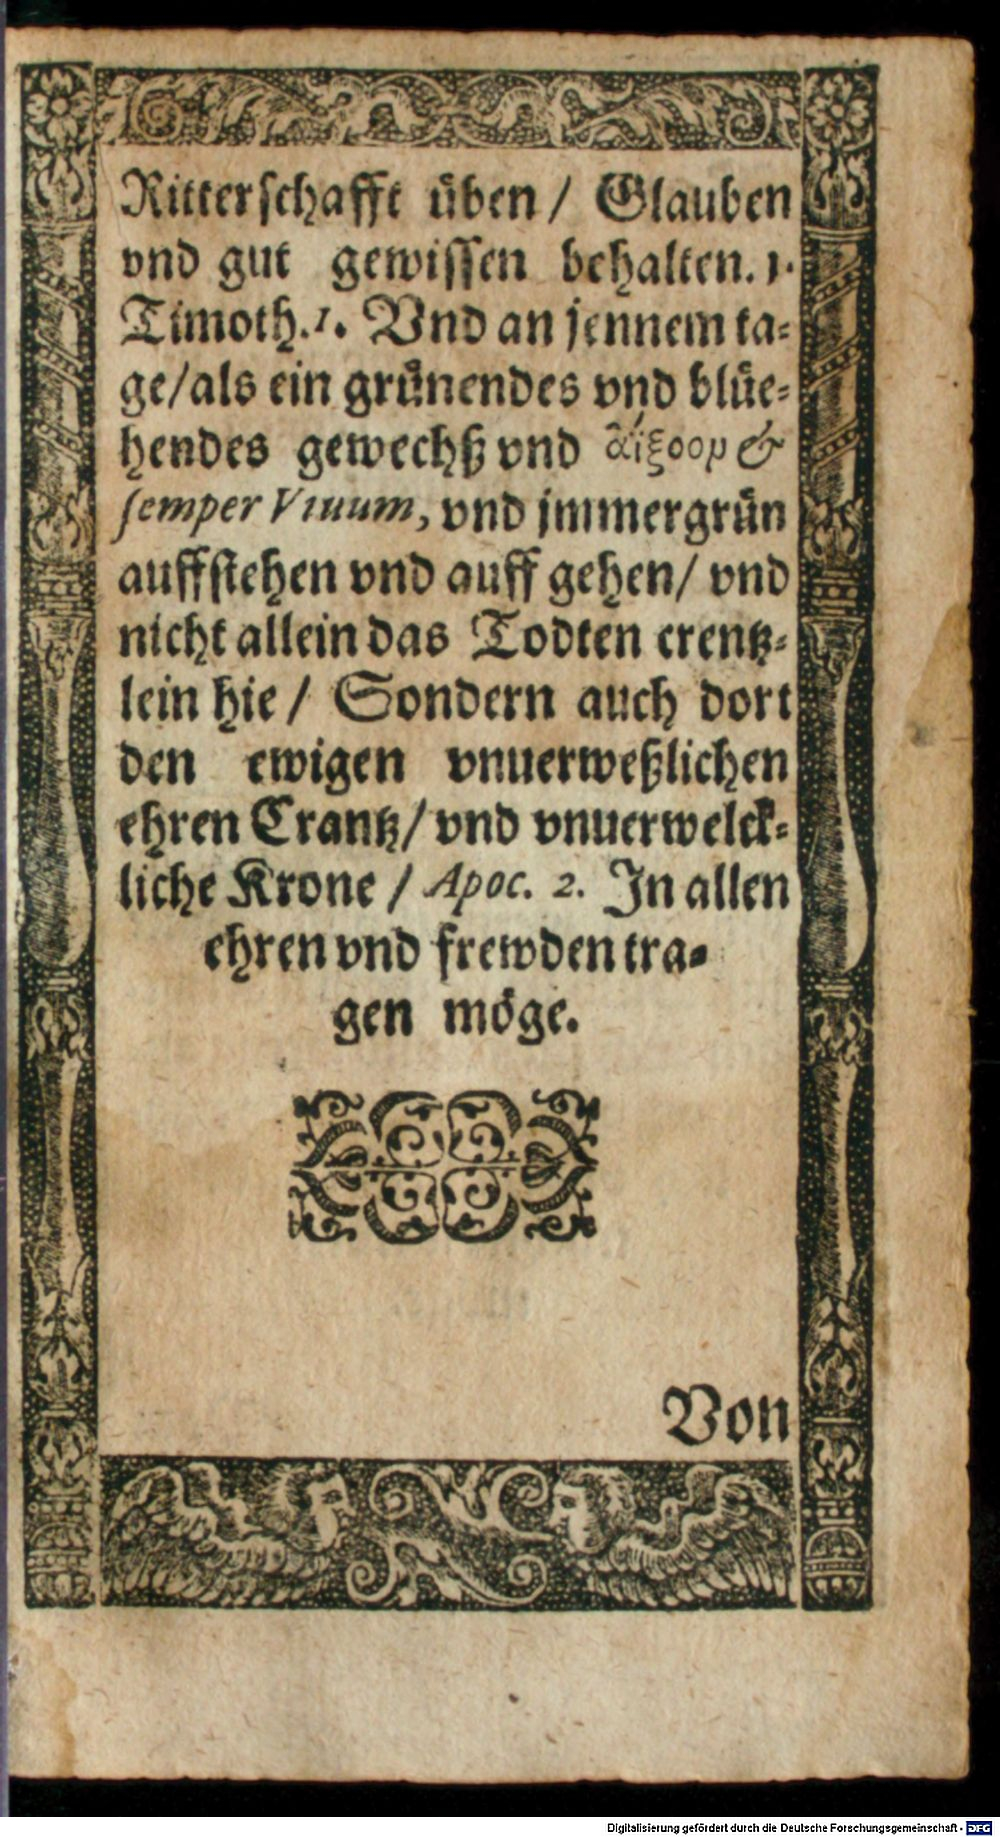 Ritterschafft üben / Glauben
vnd gut gewissen behalten. 1.
Timoth. 1. Vnd an jennem ta-
ge / als ein grünendes vnd blüe-
hendes gewechß vnd &
semper Viuum, vnd jmmergrün
auffstehen vnd auff gehen / vnd
nicht allein das Todten crentz-
lein hie / Sondern auch dort
den ewigen vnuerweßlichen
ehren Crantz / vnd vnuerwelck-
liche Krone / Apoc. 2. In allen
ehren vnd frewden tra-
gen möge.
Von
Digitalisierung gefördert durch die Deutsche Forschungsgemeinschaft - DFG